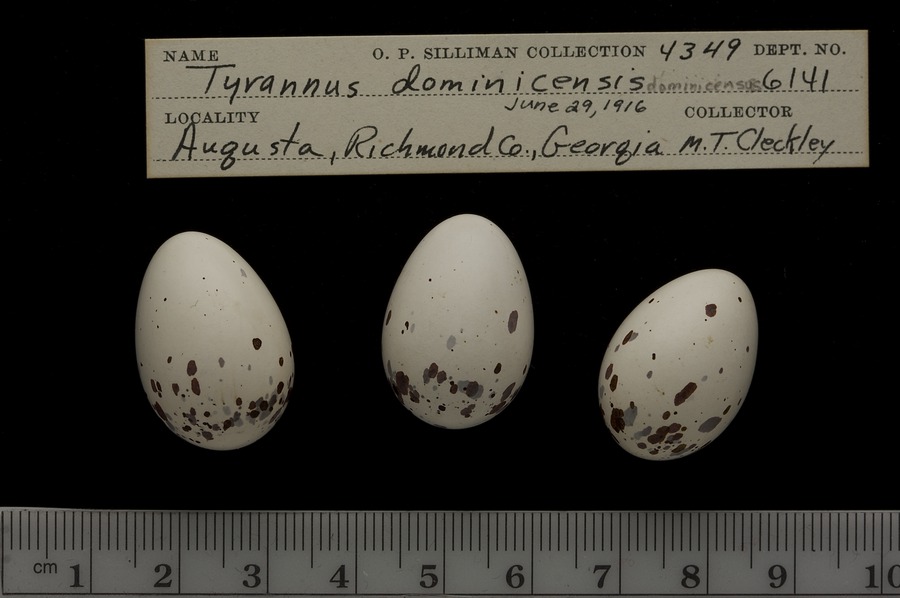 NAME O. P. SILLIMAN COLLECTION 4349 DEPT. NO.
Tyrannus dominicensis dominicensus 6141
June 29, 1916
LOCALITY COLLECTOR
Augusta, Richmond Co., Georgia M.T. Cleckley
cm 1 2 3 4 5 6 7 8 9 10